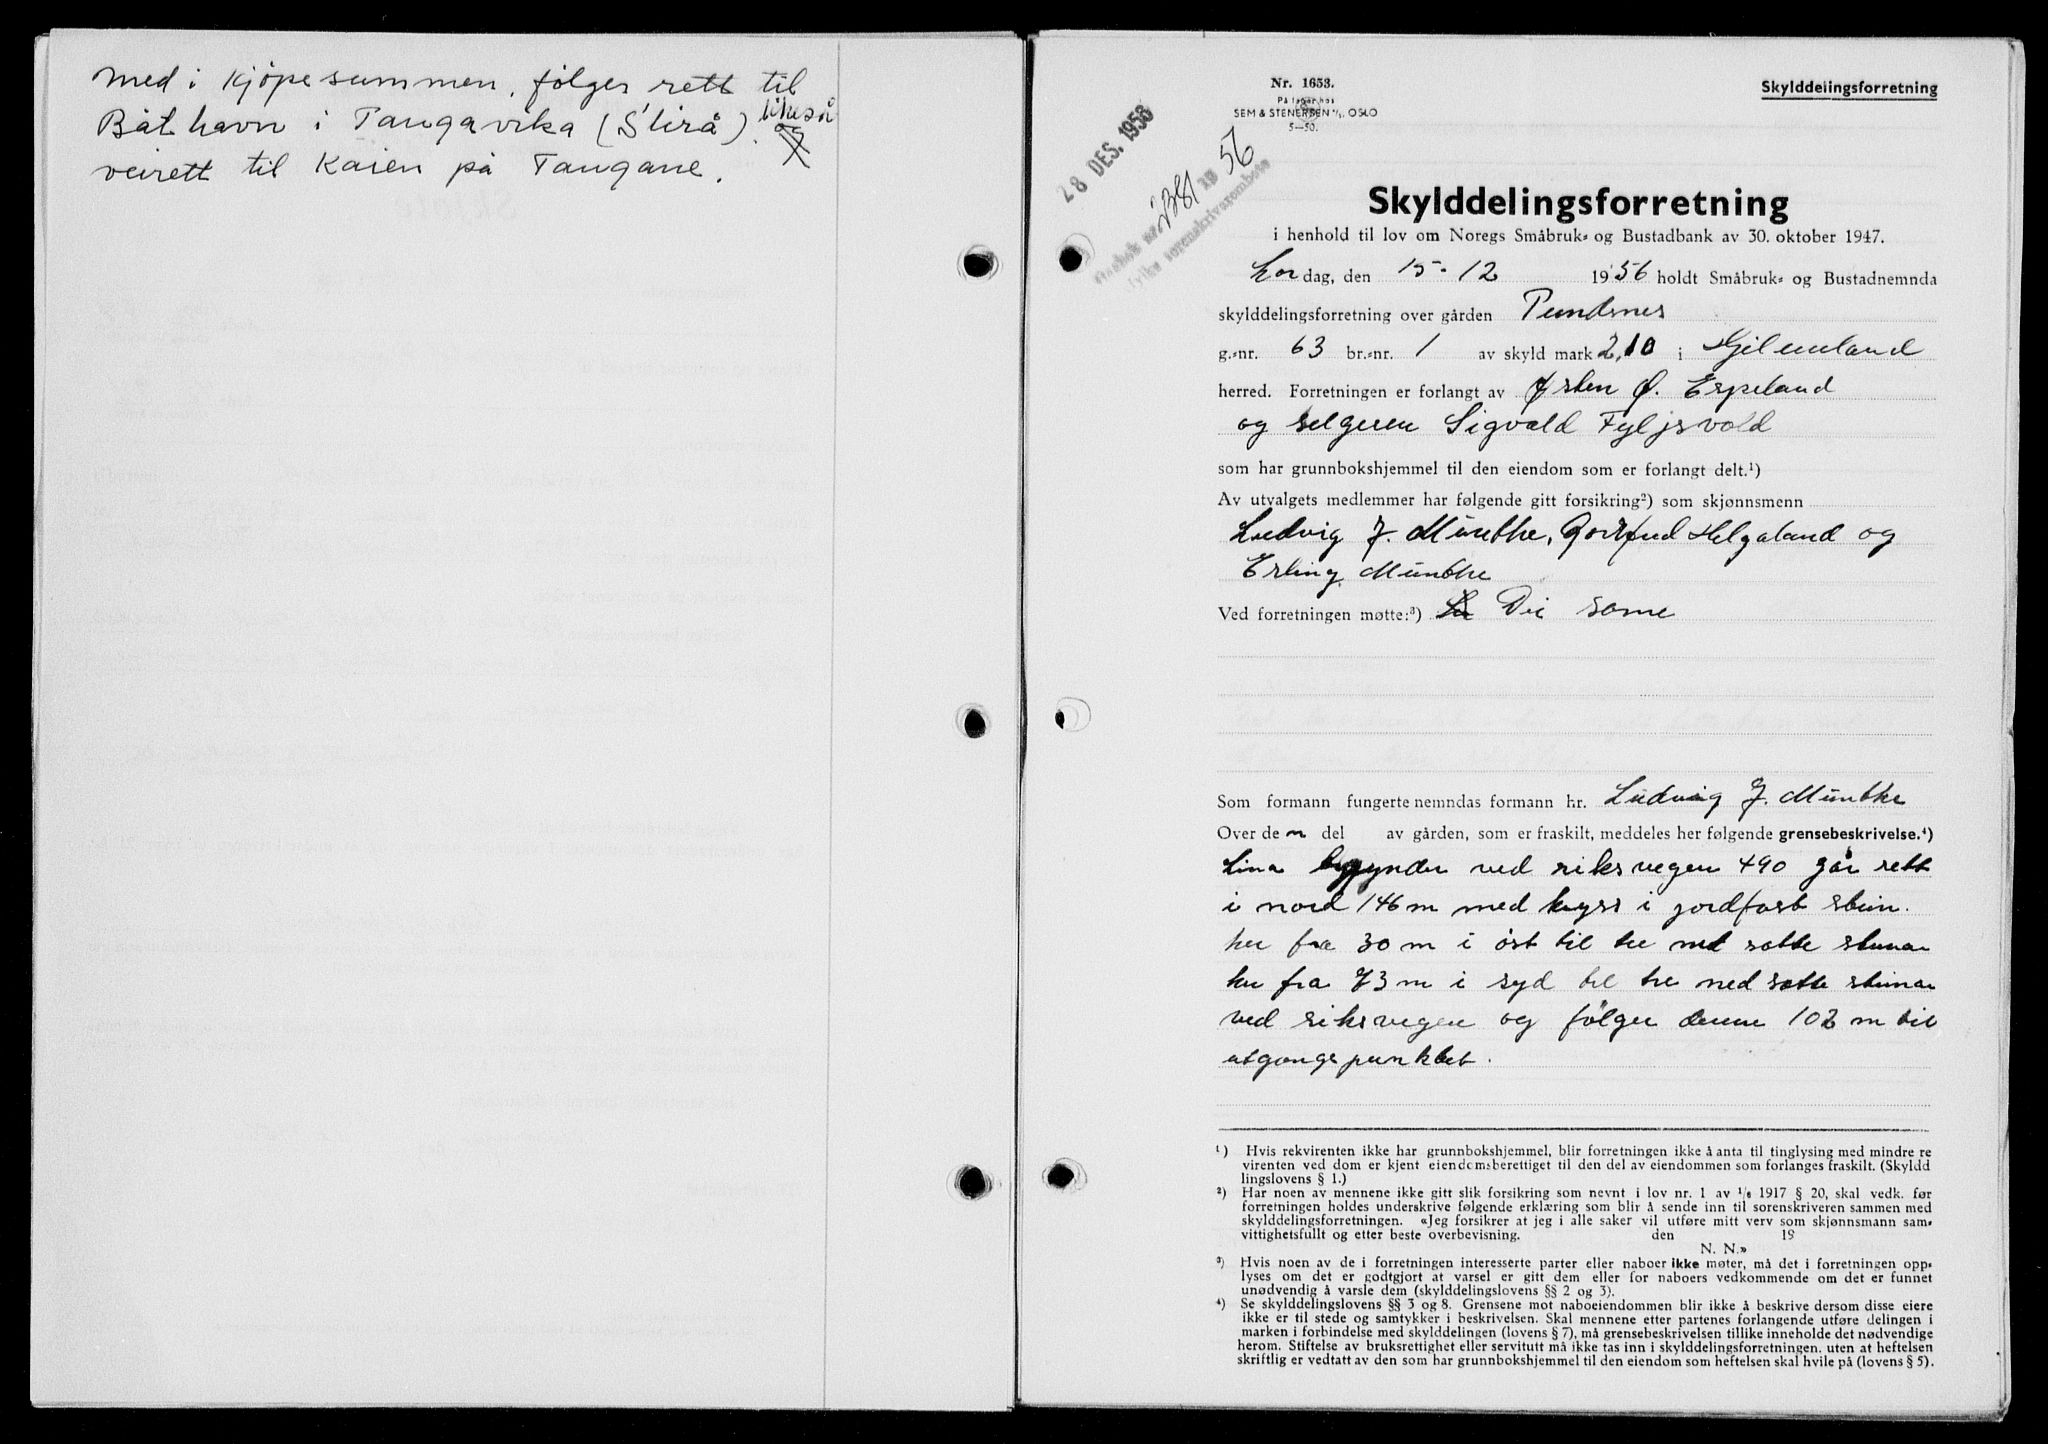 med i kjøpesummen, følger rett til
Båthavn i Tangavika (Stirå). likeså
og
veirett til Kaien på Tangane.
Nr. 1653.
På lager hos
SEM & STENERSEN A/S, OSLO
5—50.
Skylddelingsforretning
28 DES. 1956
Dagbok nr. 2381 19 56
Ryfylke sorenskrivarembete
Skylddelingsforretning
i henhold til lov om Noregs Småbruk- og Bustadbank av 30. oktober 1947.
Lør dag, den 15-12 1956 holdt Småbruk- og Bustadnemnda
skylddelingsforretning over gården Pundsnes
g.-nr. 63 br.-nr. 1 av skyld mark 2,10 i Hjelmeland
herred. Forretningen er forlangt av Østen Ø. Espeland
og selgeren Sigvald Fyljsvold
som har grunnbokshjemmel til den eiendom som er forlangt delt.¹)
Av utvalgets medlemmer har følgende gitt forsikring²) som skjønnsmenn
Ludvig J. Munthe, Gotfred Helgaland og
Erling Munthe
Ved forretningen møtte:³) Dei same
Som formann fungerte nemndas formann hr. Ludvig J. Munthe
Over de n del av gården, som er fraskilt, meddeles her følgende grensebeskrivelse.⁴)
Lina bygynder ved riksvegen 490 går rett
i nord 146 m med kyss i jordfast stein.
her fra 30 m i øst til tre ned satte steinar
her fra 73 m i syd til tre ned satte steinar
ved riksvegen og følger denne 102 m til
utgangspunktet.
¹) Hvis rekvirenten ikke har grunnbokshjemmel, blir forretningen ikke å anta til tinglysing med mindre re
virenten ved dom er kjent eiendomsberettiget til den del av eiendommen som forlanges fraskilt. (Skyldd
lingslovens § 1.)
²) Har noen av mennene ikke gitt slik forsikring som nevnt i lov nr. 1 av 1/6 1917 § 20, skal vedk. før
forretningen holdes underskrive følgende erklæring som blir å sende inn til sorenskriveren sammen med
skylddelingsforretningen. «Jeg forsikrer at jeg i alle saker vil utføre mitt verv som skjønnsmann sam-
vittighetsfullt og etter beste overbevisning. den 19
N. N.»
³) Hvis noen av de i forretningen interesserte parter eller naboer ikke møter, må det i forretningen opp-
lyses om det er godtgjort at varsel er gitt dem eller for naboers vedkommende om det er funnet
unødvendig å varsle dem (skylddelingslovens §§ 2 og 3).
⁴) Se skylddelingslovens §§ 3 og 8. Grensene mot naboeiendommen blir ikke å beskrive dersom disse eiere
ikke er til stede og samtykker i beskrivelsen. Skal mennene etter partenes forlangende utføre delingen i
marken i forbindelse med skylddelingen (lovens § 7), må grensebeskrivelsen tillike inneholde det nødvendige
herom. Stiftelse av bruksrettighet eller servitutt må ikke tas inn i skylddelingsforretningen, uten at heftelsen
skriftlig er vedtatt av den som har grunnbokshjemmel til den eiendom som heftelsen skal hvile på (lovens § 5).